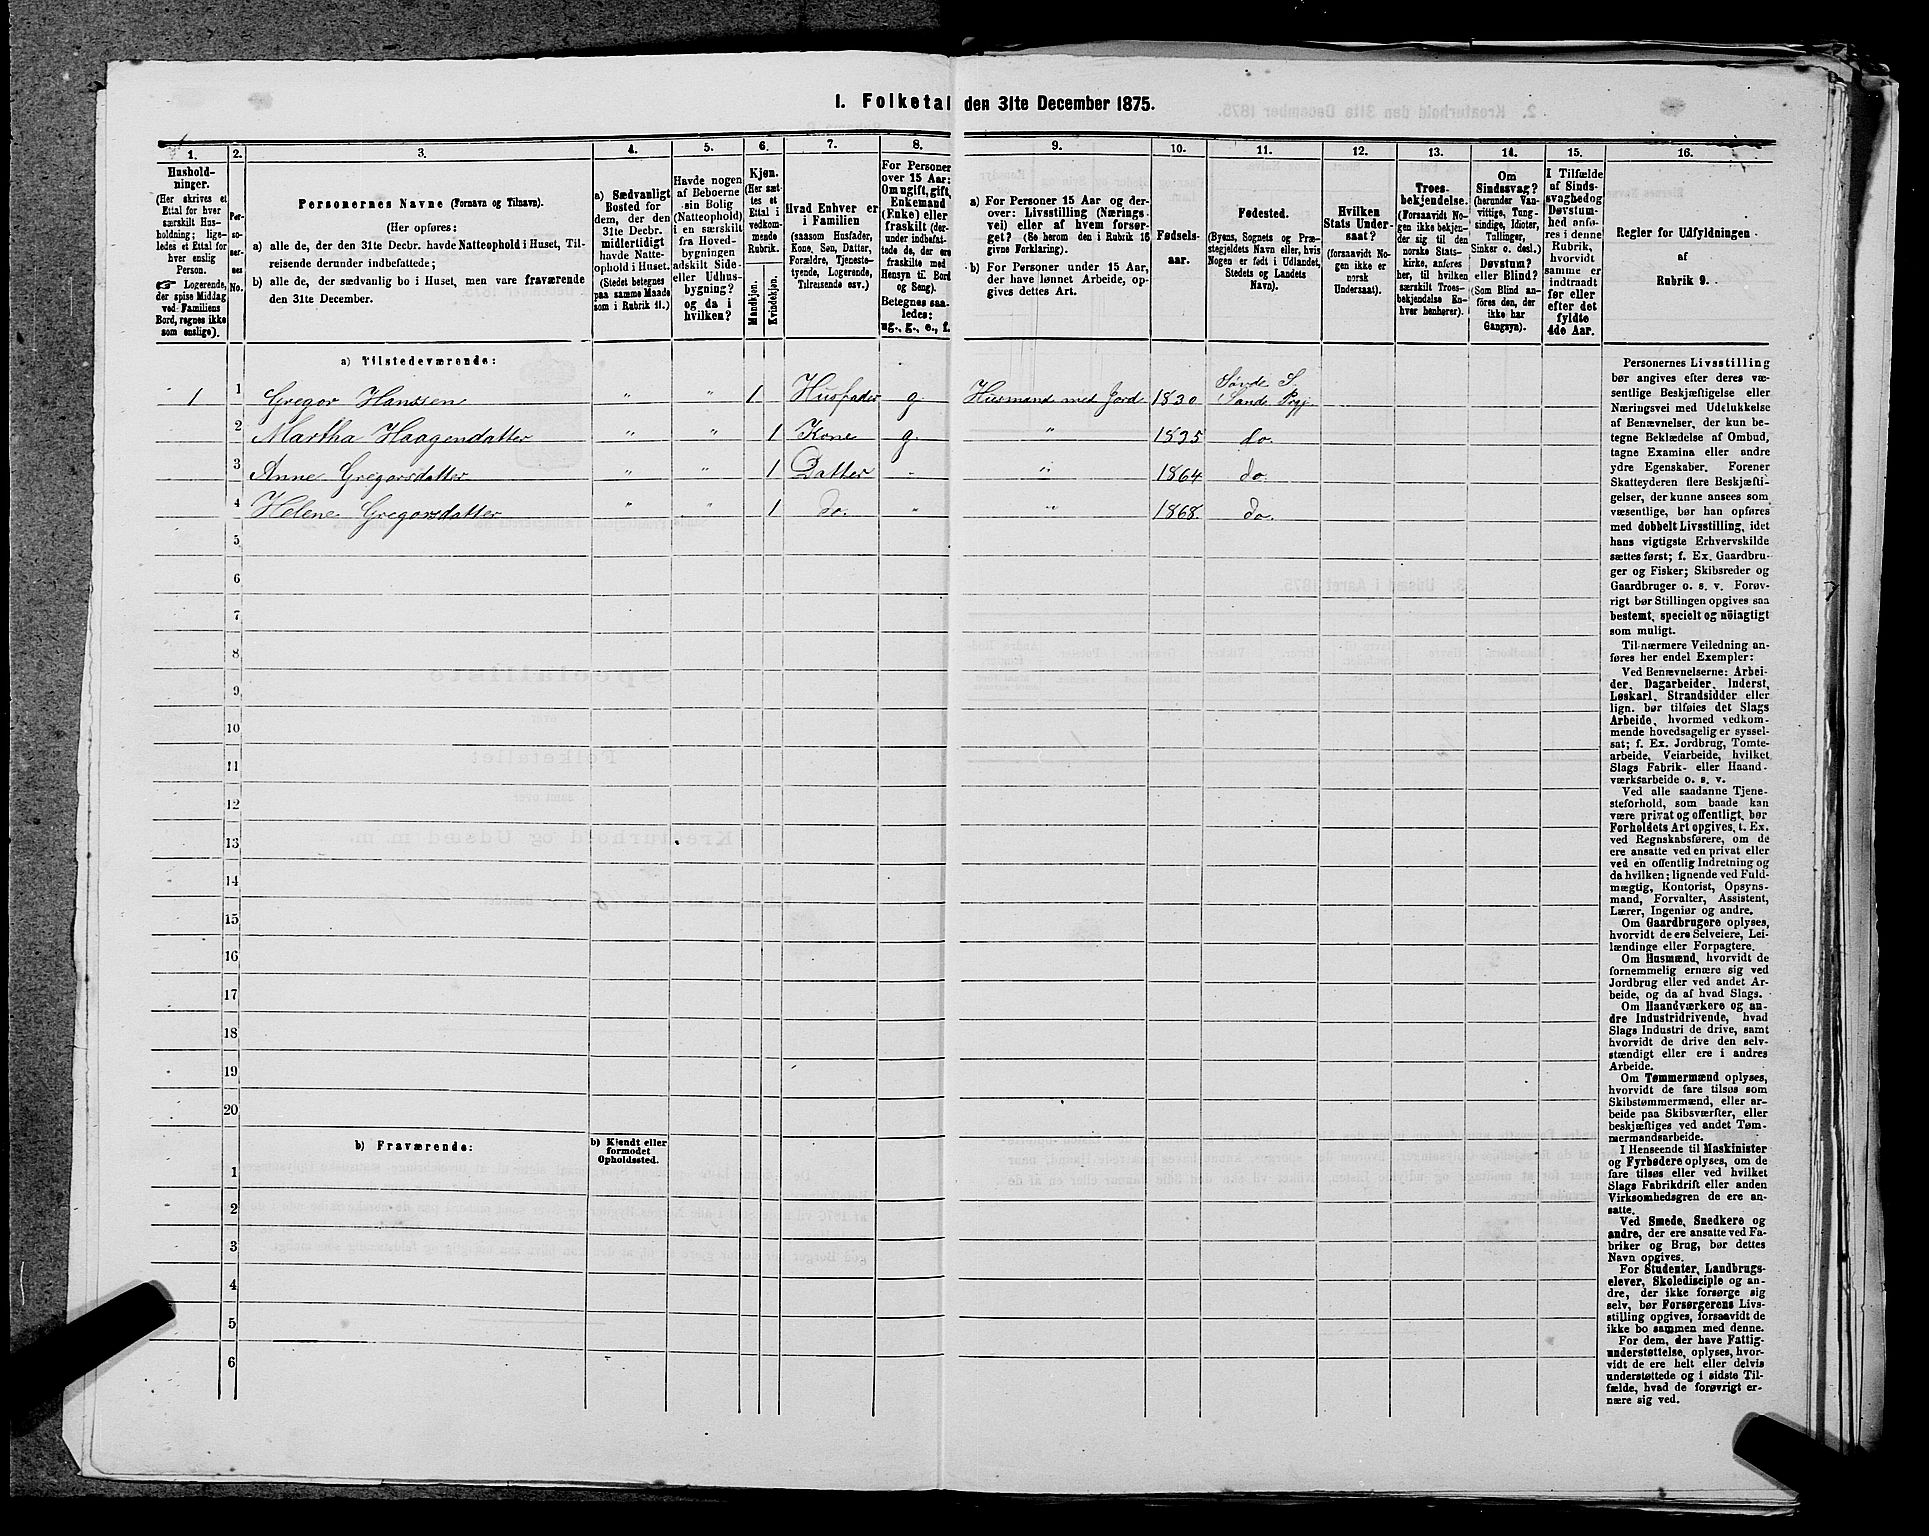 I. Folketal den 31te December 1875.
1. 2. 3. 4. 5. 6. 7. 8. 9. 10. 11. 12. 13. 14. 15. 16.
Hushold-
ninger.
(Her skrives et
Ettal for hver
særskilt Hus-
holdning; lige-
ledes et Ettal for
hver enslig
Person.
☛ Logerende,
der spise Middag
ved Familiens
Bord, regnes ikke
som enslige).
Per-
so-
ner-
nes
No.
Personernes Navne (Fornavn og Tilnavn).
(Her opføres:
a) alle de, der den 31te Decbr. havde Natteophold i Huset, Til-
reisende derunder indbefattede;
b) alle de, der sædvanlig bo i Huset, men vare fraværende
den 31te December.
a) Sædvanligt
Bosted for
dem, der den
31te Decbr.
midlertidigt
havde Natte-
ophold i Huset.
(Stedet betegnes
paa samme Maade
som i Rubrik 11.)
Havde nogen
af Beboerne
sin Bolig
(Natteophold)
i en særskilt
fra Hoved-
bygningen
adskilt Side-
eller Udhus-
bygning?
og da i
hvilken?
Kjøn.
(Her sæt-
tes et
Ettal i
vedkom-
mende
Rubrik.
Mandkjøn.
Kvindekjøn.
Hvad Enhver er
i Familien
(saasom Husfader,
Kone, Søn, Datter,
Forældre, Tjeneste-
tyende, Logerende,
Tilreisende osv.)
For Personer
over 15 Aar:
Om ugift, gift,
Enkemand
(Enke) eller
fraskilt (der-
under indbefat-
tede de, der ere
fraskilte med
Hensyn til Bord
og Seng).
Betegnes saa-
ledes:
ug., g., e., f.
a) For Personer 15 Aar og der-
over: Livsstilling (Nærings-
vei) eller af hvem forsør-
get? (Se herom den i Rubrik 16
givne Forklaring).
b) For Personer under 15 Aar,
der have lønnet Arbeide, op-
gives dettes Art.
Fødsels-
aar.
Fødested.
(Byens, Sognets og Præ-
stegjeldets Navn eller, hvis
Nogen er født i Udlandet,
Stedets og Landets
Navn).
Hvilken
Stats Under-
saat?
(forsaavidt No-
gen ikke er
norsk
Undersaat).
Troes-
bekjendelse.
(Forsaavidt No-
gen ikke bekjen-
der sig til den
norske Stats-
kirke, anføres
her, til hvilken
særskilt Troes-
bekjendelse En-
hver henhører).
Om
Sindssvag?
(herunder Van-
vittige, Tung-
sindige, Idioter,
Tullinger,
Sinker o. desl.)
Døvstum?
eller Blind?
(Som Blind an-
føres den, der
ikke har
Gangsyn).
I Tilfælde
af Sinds-
svaghed og
Døvstum-
hed anfø-
res i denne
Rubrik,
hvorvidt
samme er
indtraadt
før eller
efter det
fyldte
4de Aar.
Regler for Udfyldningen
af
Rubrik 9.
a) Tilstedeværende:
1 1 Gregor Hanssen " " 1 Husfader g. Husmand med Jord 1830 Sande S. Sande Prgj.
2 Martha Haagendatter " " 1 Kone g. " 1835 do.
3 Anne Gregorsdatter " " 1 Datter - " 1864 do.
4 Helene Gregorsdatter " " 1 do. " " 1868. do.
5
6
7
8
9
10
11
12
13
14
15
16
17
18
19
20
b) Fraværende:
b) Kjendt eller
formodet
Opholdssted.
1
2
3
4
5
6
Personernes Livsstilling
bør angives efter deres væ-
sentlige Beskjæftigelse eller
Næringsvei med Udelukkelse
af Benævnelser, der kun be-
tegne Beklædelse af Ombud,
tagne Examina eller andre
ydre Egenskaber. Forener
Skatteyderen flere Beskjæfti-
gelser, der kunne ansees som
væsentlige, bør han opføres
med dobbelt Livsstilling, idet
hans vigtigste Erhvervskilde
sættes først; f. Ex. Gaardbru-
ger og Fisker; Skibsreder og
Gaardbruger o. s. v. Forøv-
rigt bør Stillingen opgives saa
bestemt, specielt og nöiagtigt
som muligt.
Til nærmere Veiledning an-
føres her endel Exempler:
Ved Benævnelserne: Arbei-
der, Dagarbeider, Inderst,
Løskarl, Strandsidder eller
lign. bør tilføies det Slags
Arbeide, hvormed vedkom-
mende hovedsagelig er syssel-
sat; f. Ex. Jordbrug, Tomte-
arbeide, Veiarbeide, hvilket
Slags Fabrik- eller Haand-
værksarbeide o. s. v.
Ved alle saadanne Tjene-
steforhold, som baade kan
være privat og offentligt, bør
Forholdets Art opgives, t. Ex.
ved Regnskabsførere, om de
ere ansatte ved en privat eller
ved en offentlig Indretning og
da hvilken; lignende ved Fuld-
mægtig, Kontorist, Opsyns-
mand, Forvalter, Assistent,
Lærer, Ingeniør og andre.
Om Gaardbrugere oplyses,
hvorvidt de ere Selveiere, Lei-
lændinge eller Forpagtere.
Om Husmænd, hvorvidt de
fornemmelig ernære sig ved
Jordbrug eller ved andet Ar-
beide, og da af hvad Slags.
Om Haandværkere og an-
dre Industridrivende, hvad
Slags Industri de drive, samt
hvorvidt de drive den selv-
stændigt eller ere i andres
Arbeide.
Om Tømmermænd oplyses,
hvorvidt de fare tilsøs som
Skibstømmermænd, eller ar-
beide paa Skibsværfter, eller
beskjæftiges ved andet Tøm-
mermandsarbeide.
I Henseende til Maskinister
og Fyrbødere oplyses, om de
fare tilsøs eller ved hvilket
Slags Fabrikdrift eller anden
Virksomhedsgren de ere an-
satte.
Ved Smede, Snedkere og
andre, der ere ansatte ved Fa-
briker og Brug, bør dettes
Navn opgives.
For Studenter, Landbrugs-
elever, Skoledisciple og an-
dre, der ikke forsørge sig
selv, bør Forsørgerens Livs-
stilling opgives, forsaavidt de
ikke bo sammen med denne.
For dem, der have Fattig-
understøttelse, oplyses, hvor-
vidt de ere helt eller delvis
understøttede og i sidste Til-
fælde, hvad de forøvrigt er-
nære sig ved.